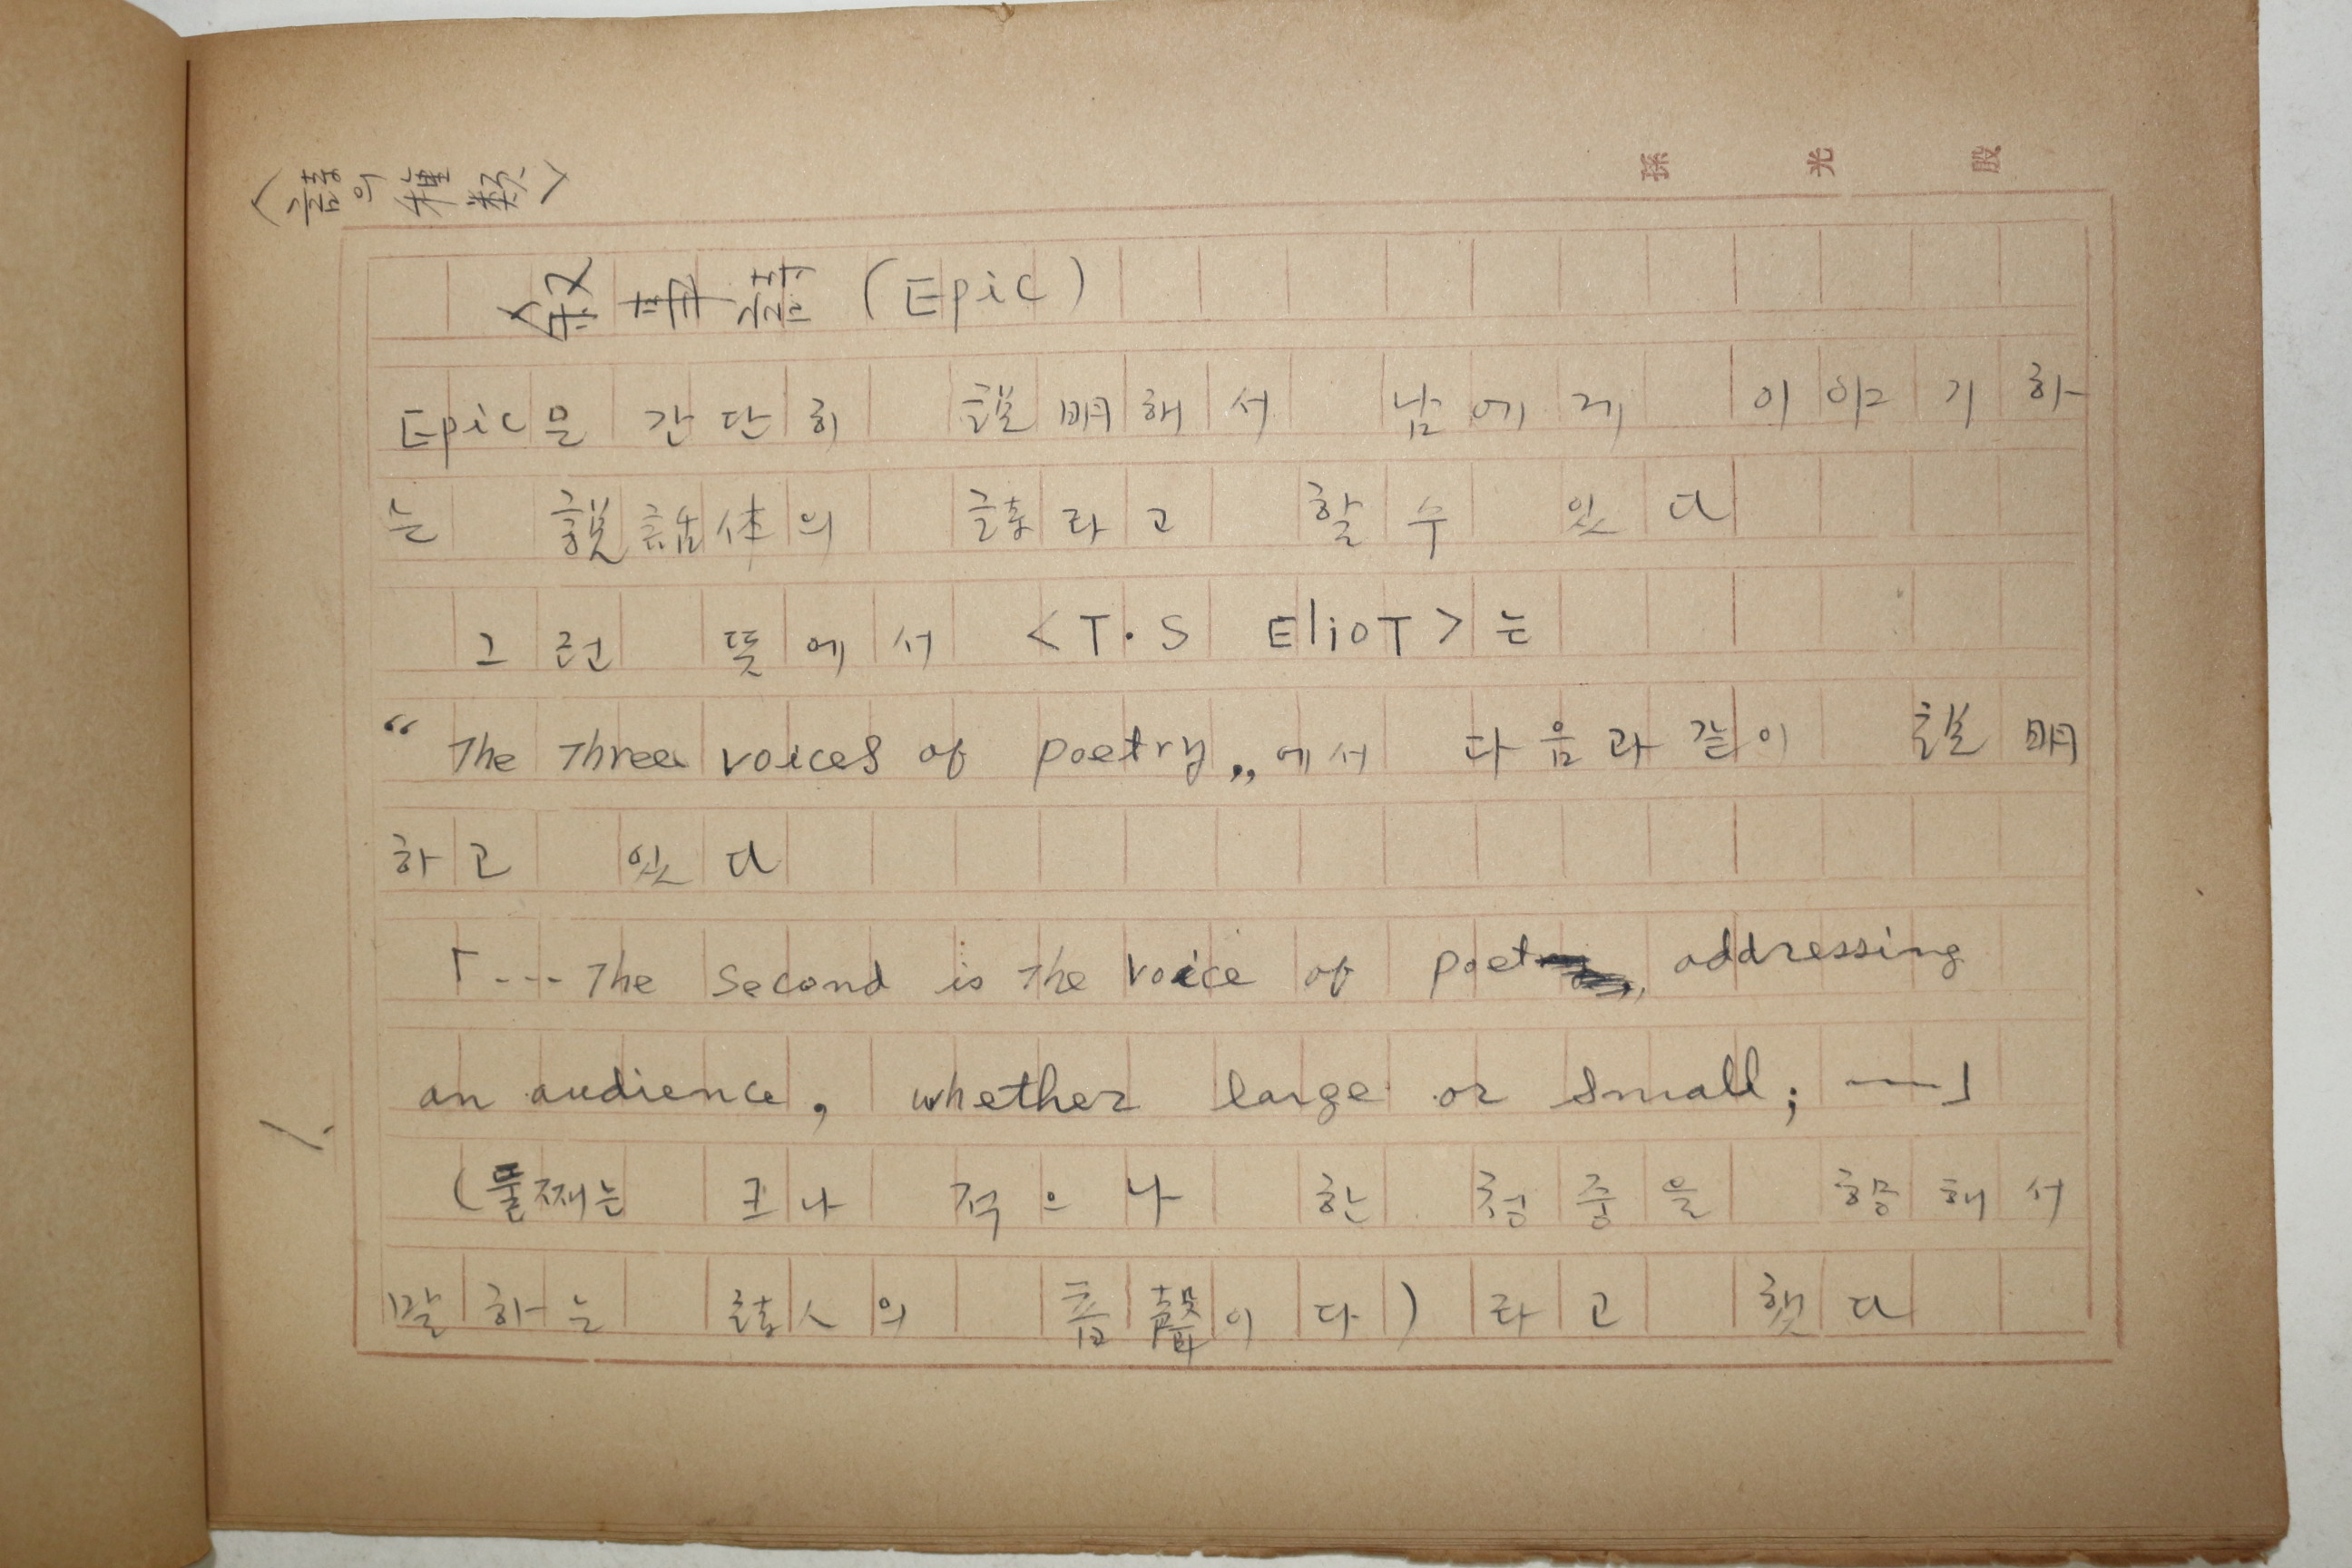 <詩의 種類>
孫 光 殷
<叙事詩 (Epic)
Epic은 간단히 說明해서 남에게 이야기하
는 說話体의 詩라고 할수 있다
그런 뜻에서 <T·S ElioT>는
“The Three voices of poetry„에서 다음과 같이 說明
하고 있다
「...The Second is the voice of poet, addressing
an audience, whether large or small; —」
(둘째는 크나 적으나 한 청중을 향해서
말하는 詩人의 音聲이다)라고 했다
1.